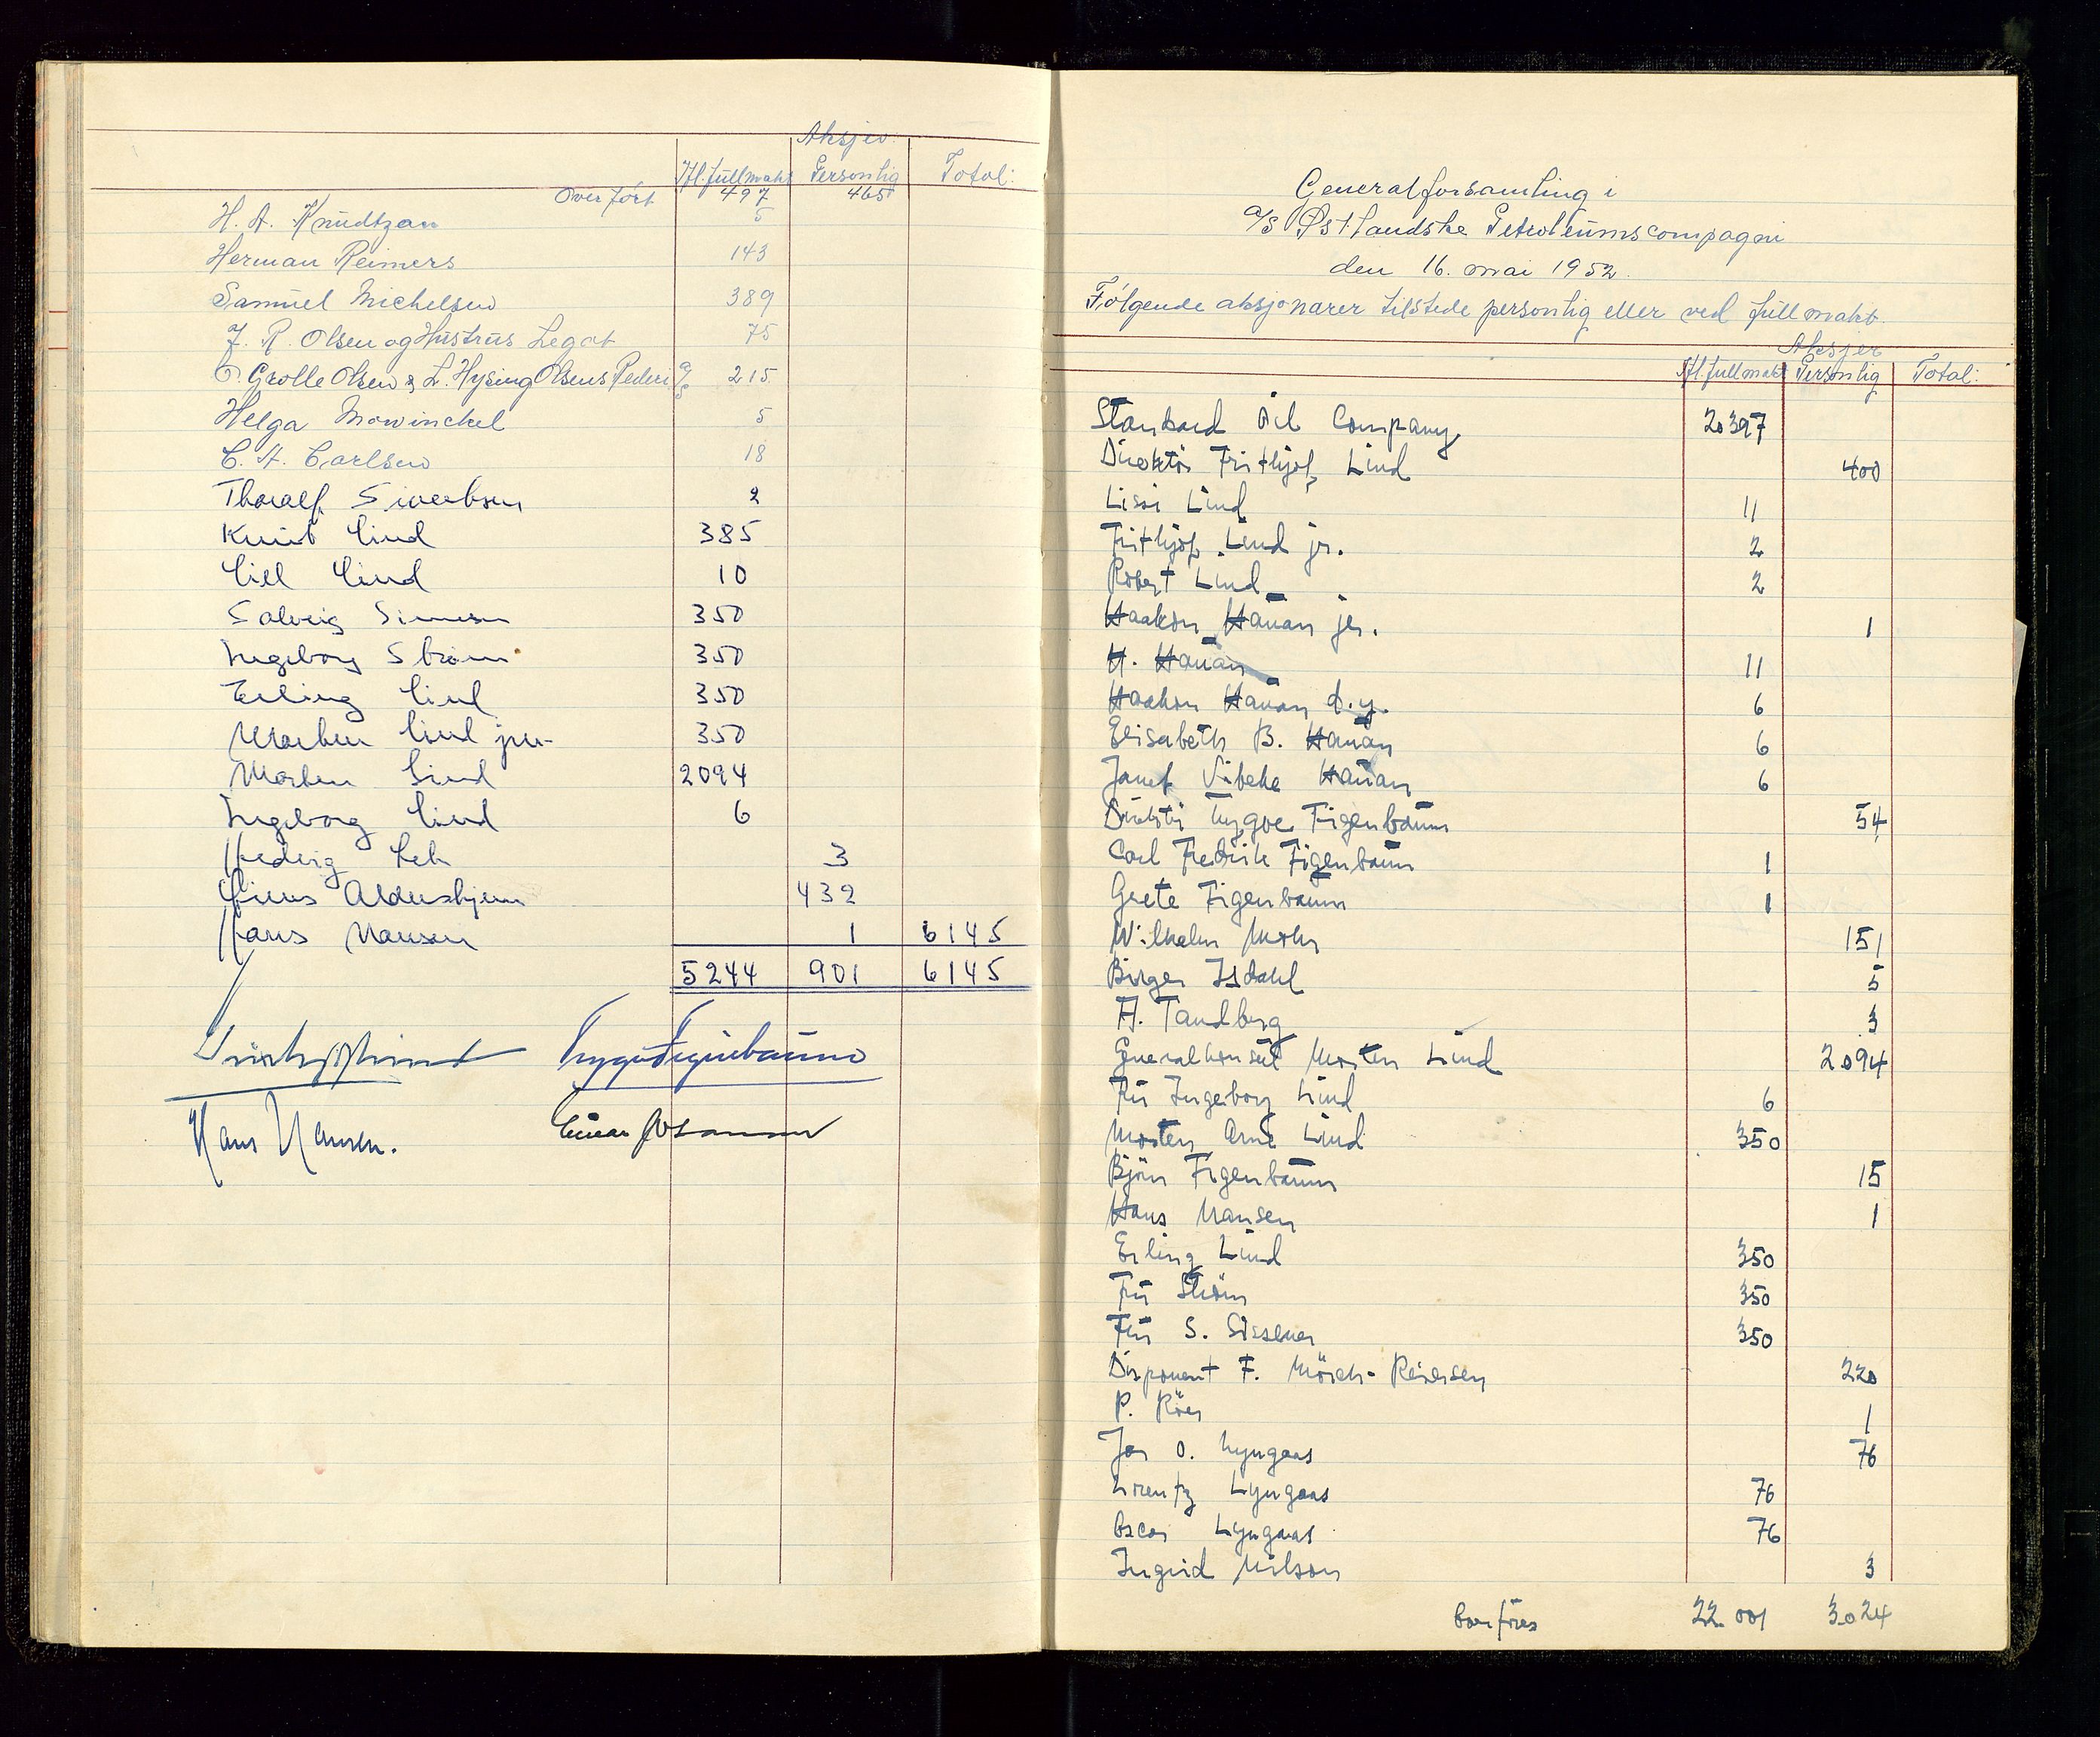 Aksjer
Ifl. fullmakt Personlig Total:
Overført 497 465
H. A. Knudtzon 5
Herman Reimers 143
Samuel Michelsen 389
J. R. Olsen og Hustrus Legat 75
O. Grolle Olsen & L. Hysing Olsens Rederi A/S 215
Helga Mowinckel 5
C. A. Carlsen 18
Thoralf 2
Knut Lind 385
Lill Lind 10
Solveig 350
Ingeborg Strøm 350
Erling Lind 350
Morten Lind jun. 350
Morten Lind 2094
Ingeborg Lind 6
Hedvig 3
432
Hans Hansen 1 6145
5244 901 6145
Trygve Figenbaum
Hans Hansen.
Generalforsamling i
A/S Østlandske Petroleumscompagni
den 16. mai 1952.
Følgende aksjonærer tilstede personlig eller ved fullmakt.
Aksjer
Ifl. fullmakt Personlig Total:
Standard Oil Company 20397
Direktør Frithjof Lind 400
Lissi Lind 11
Frithjof Lind jr. 2
Robert Lind 2
Haakon Hauan jr. 1
H. Hauan 11
Haakon Hauan d.y. 6
Elisabeth B. Hauan 6
Janet Vibeke Hauan 6
Direktør Trygve Figenbaum 54
Carl Fredrik Figenbaum 1
Grete Figenbaum 1
Wilhelm Mohr 151
Birger Isdahl 5
A. Tandberg 3
Generalkonsul Morten Lind 2094
Fru Ingeborg Lind 6
Morten Arne Lind 350
Bjørn Figenbaum 15
Hans Hansen 1
Erling Lind 350
Fru Strøm 350
Fru S. Sissener 350
Disponent F. Mörch-Reiersen 220
P. Röer 1
Jar O. Lyngaas 76
Lorentz Lyngaas 76
Oscar Lyngaas 76
Ingrid Nilson 3
Overføres 22.001 3024